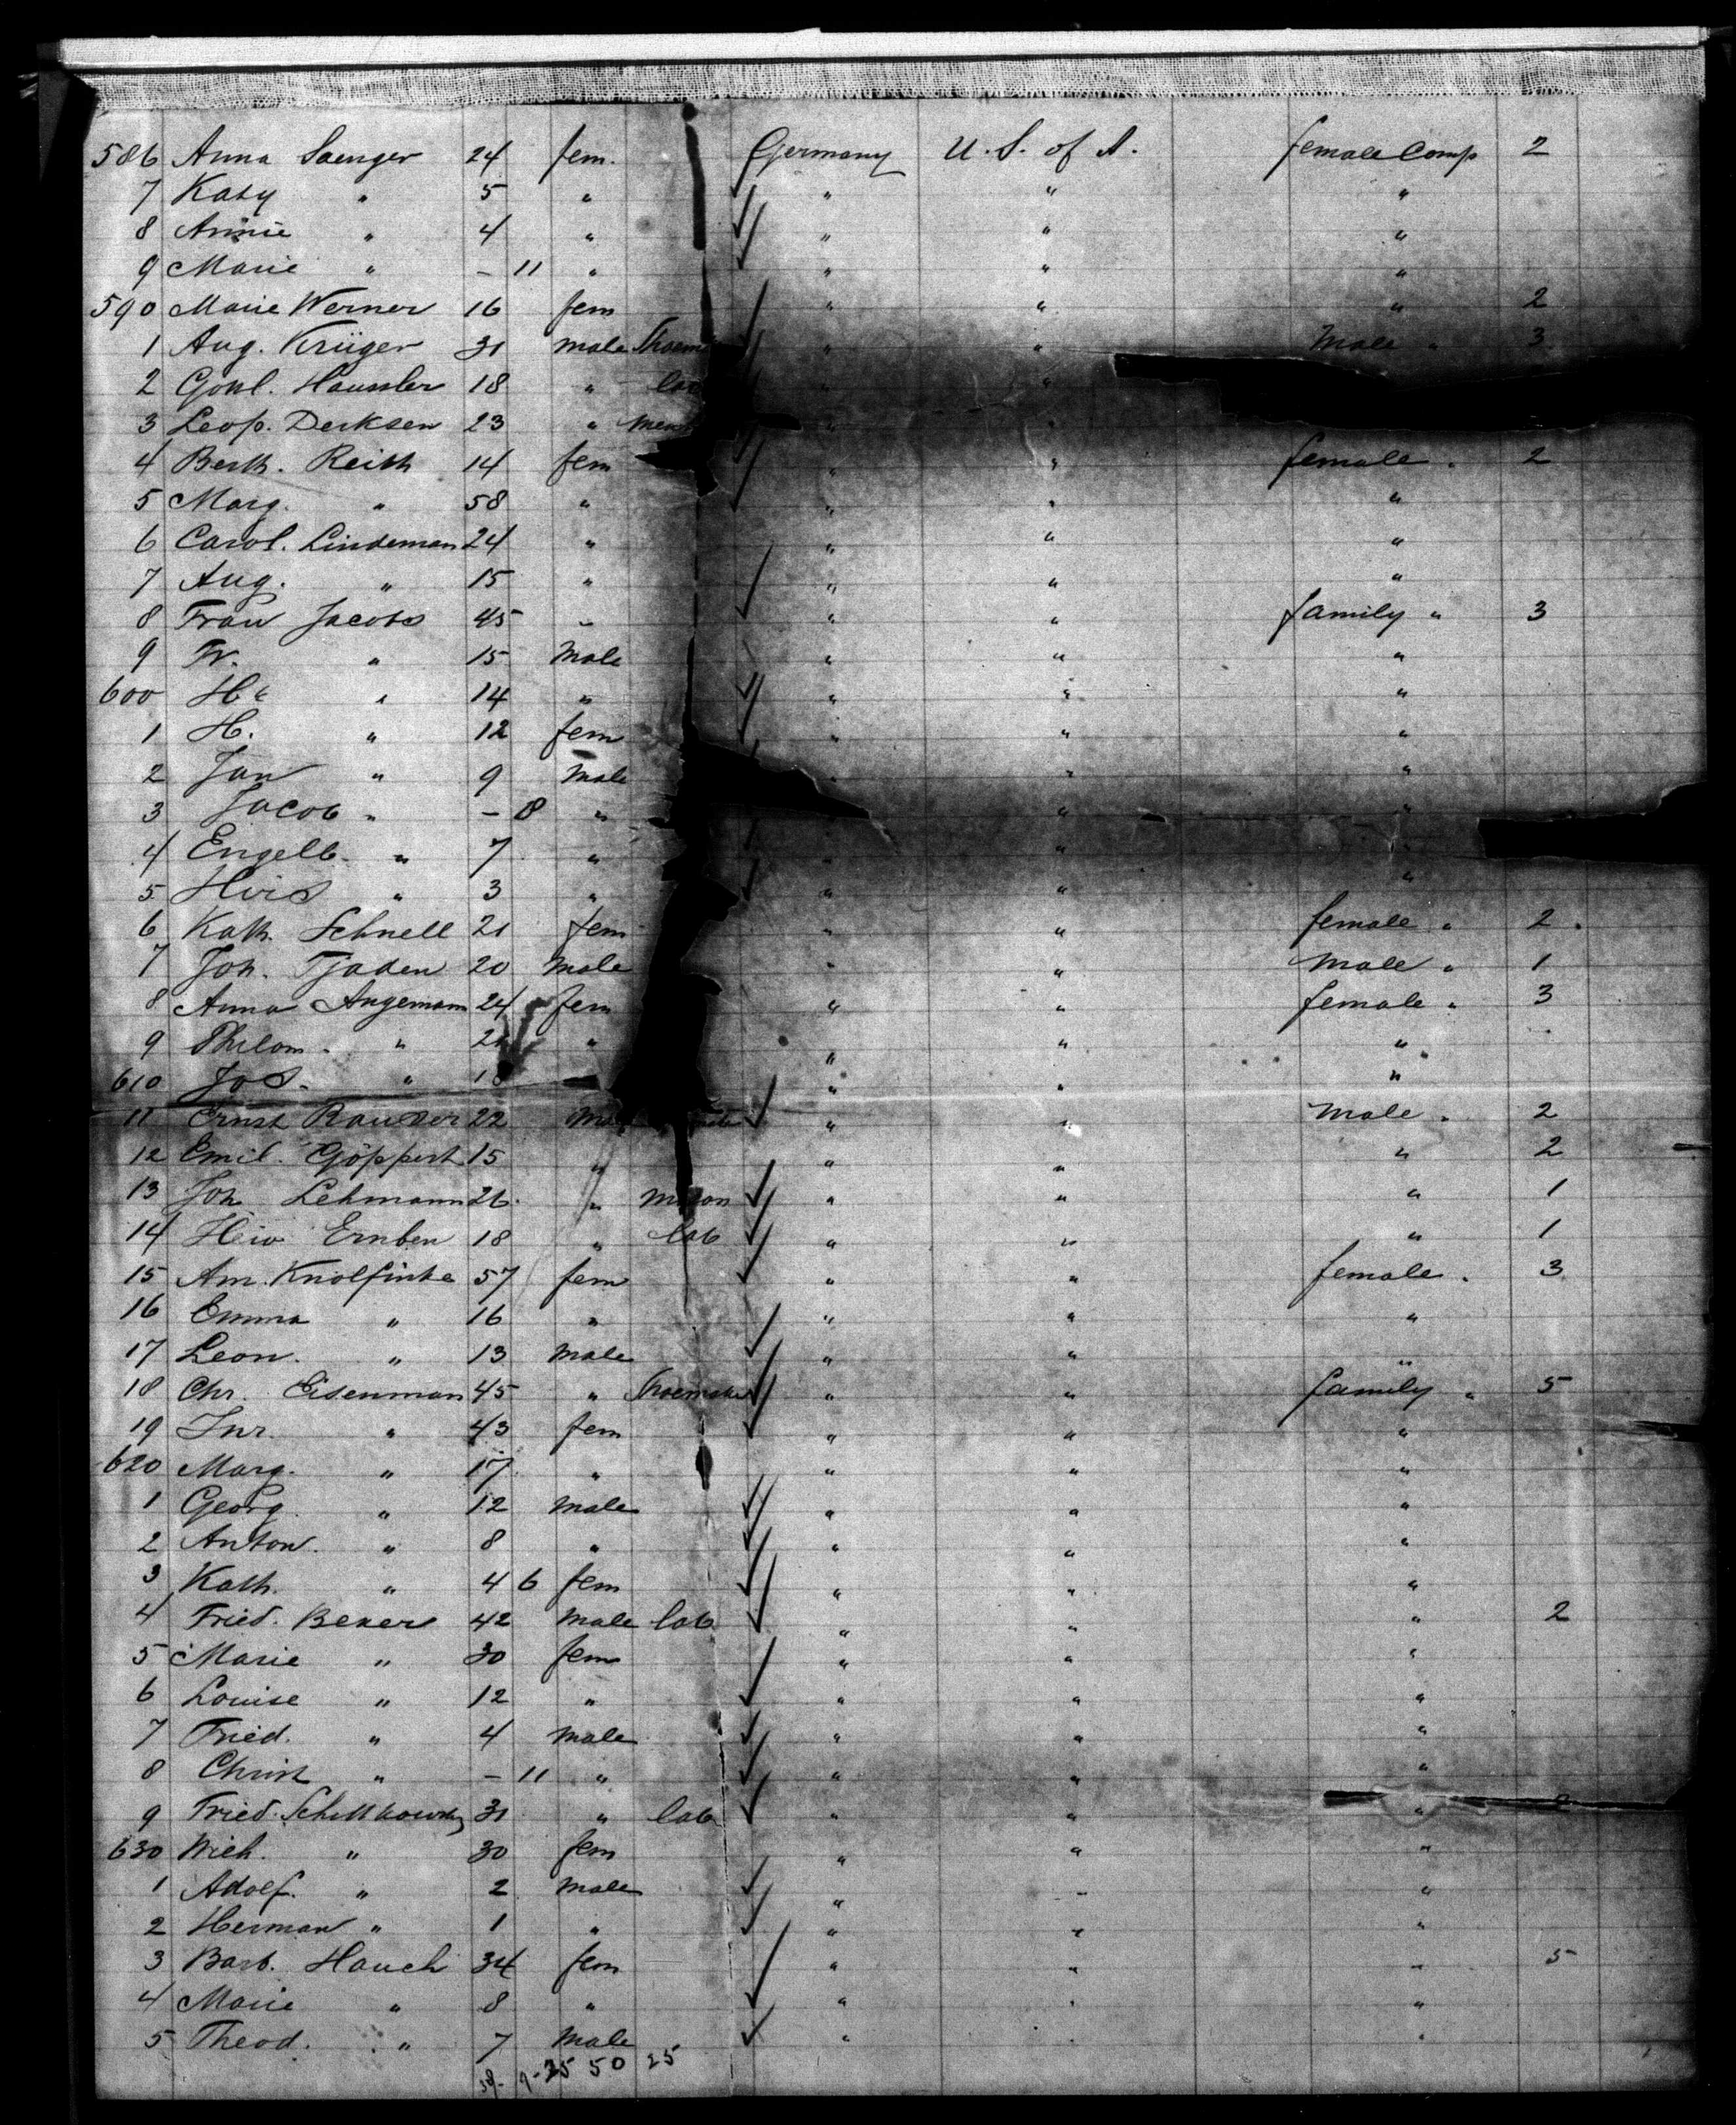 586 Anna Saenger 24 fem. Germany U. S. of A. female Comp 2
7 Katy " 5 " " " "
8 Annie " 4 " " " "
9 Marie " - 11 " " " "
590 Marie Werner 16 fem " " " 2
1 Aug. Krüger 31 male Shoem " " Male " 3
2 Gottl. Haussler 18 " lab " "
3 Leop. Derksen 23 " " "
4 Berth. Reith 14 fem " " female " 2
5 Marg. " 58 " " " "
6 Carol. Lindeman 24 " " " "
7 Aug. " 15 " " " "
8 Frau Jacobs 45 " " " family " 3
9 Fr. " 15 Male " " "
600 " 14 " " " "
1 H. " 12 fem " " "
2 Jan " 9 Male " " "
3 Jacob " - 8 " " "
4 Engelb. " 7 " " " "
5 " 3 " " " "
6 Kath. Schnell 21 fem " " female " 2
7 Joh. Tjaden 20 Male " " Male " 1
8 Anna Angemann 24 fem " " female " 3
9 Philom. " " " " "
610 Jos. " 18 " " "
11 Ernst 22 " " Male " 2
12 Emil. Göppert 15 " " " " 2
13 Joh Lehmann 26 " mason " " " 1
14 18 " lab " " " 1
15 Am. Knolfinke 57 fem " " female " 3
16 Emma " 16 " " " "
17 Leon. " 13 Male " " "
18 Chr. Eisenman 45 " Shoemaker " " family " 5
19 " 43 fem " " "
620 Marg. " 17 " " " "
1 Georg. " 12 Male " " "
2 Anton. " 8 " " " "
3 Kath. " 4 6 fem " " "
4 Fried. 42 Male lab " " " 2
5 Marie " 30 fem " " "
6 Louise " 12 " " " "
7 Fried. " 4 Male " " "
8 Christ " - 11 " " " "
9 Fried. 31 " lab " " "
630 " 30 fem " " "
1 Adolf. " 2 Male " " "
2 Herman " 1 " " " "
3 Barb. Hauch 34 fem " " " 5
4 Marie " 8 " " " "
5 Theod. " 7 Male " " "
50 25